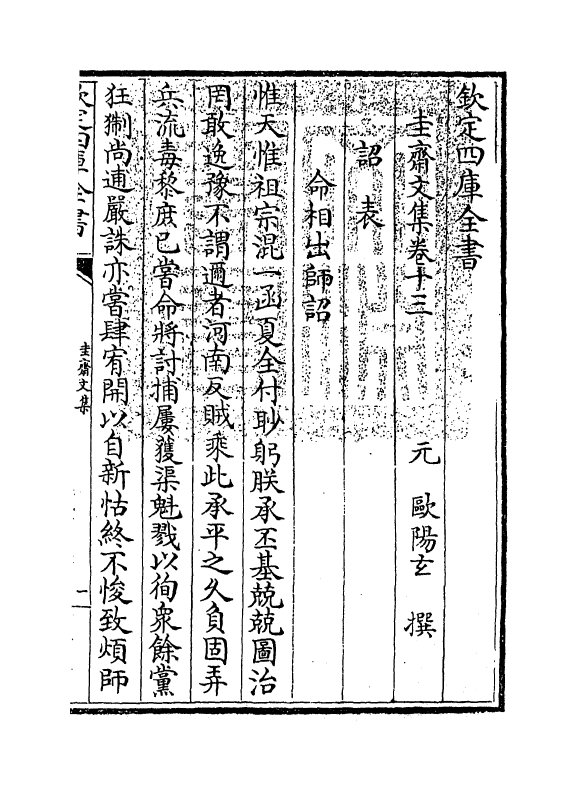 欽定四庫全書
圭齋文集卷十三
元 歐陽玄 撰
詔 表
命相出師詔
惟天惟祖宗混一函夏全付眇躬朕承丕基兢兢圖治
罔敢逸豫不謂邇者河南反賊乘此承平之久負固弄
兵流毒黎庶已嘗命將討捕屢獲渠魁戮以徇衆餘黨
狂猘尚逋嚴誅亦嘗肆宥開以自新怙終不悛致煩師
欽定四庫全書
圭齋文集
一